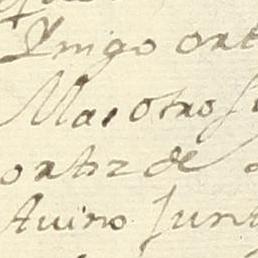 Ynigo orte
Mas otro s
ortiz de
Auino Junt